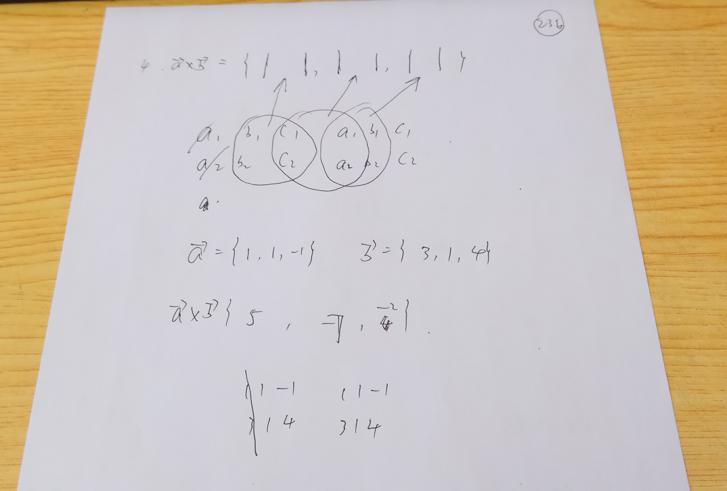 236
4. a⃗×b⃗ = { | |, | |, | | }
a₁ b₁ c₁ a₁ b₁ c₁
a₂ b₂ c₂ a₂ b₂ c₂
a⃗ = {1, 1, -1} b⃗ = { 3, 1, 4}
a⃗×b⃗ { 5 , -7, -2 } .
1 1 -1 1 1 -1
3 1 4 3 1 4